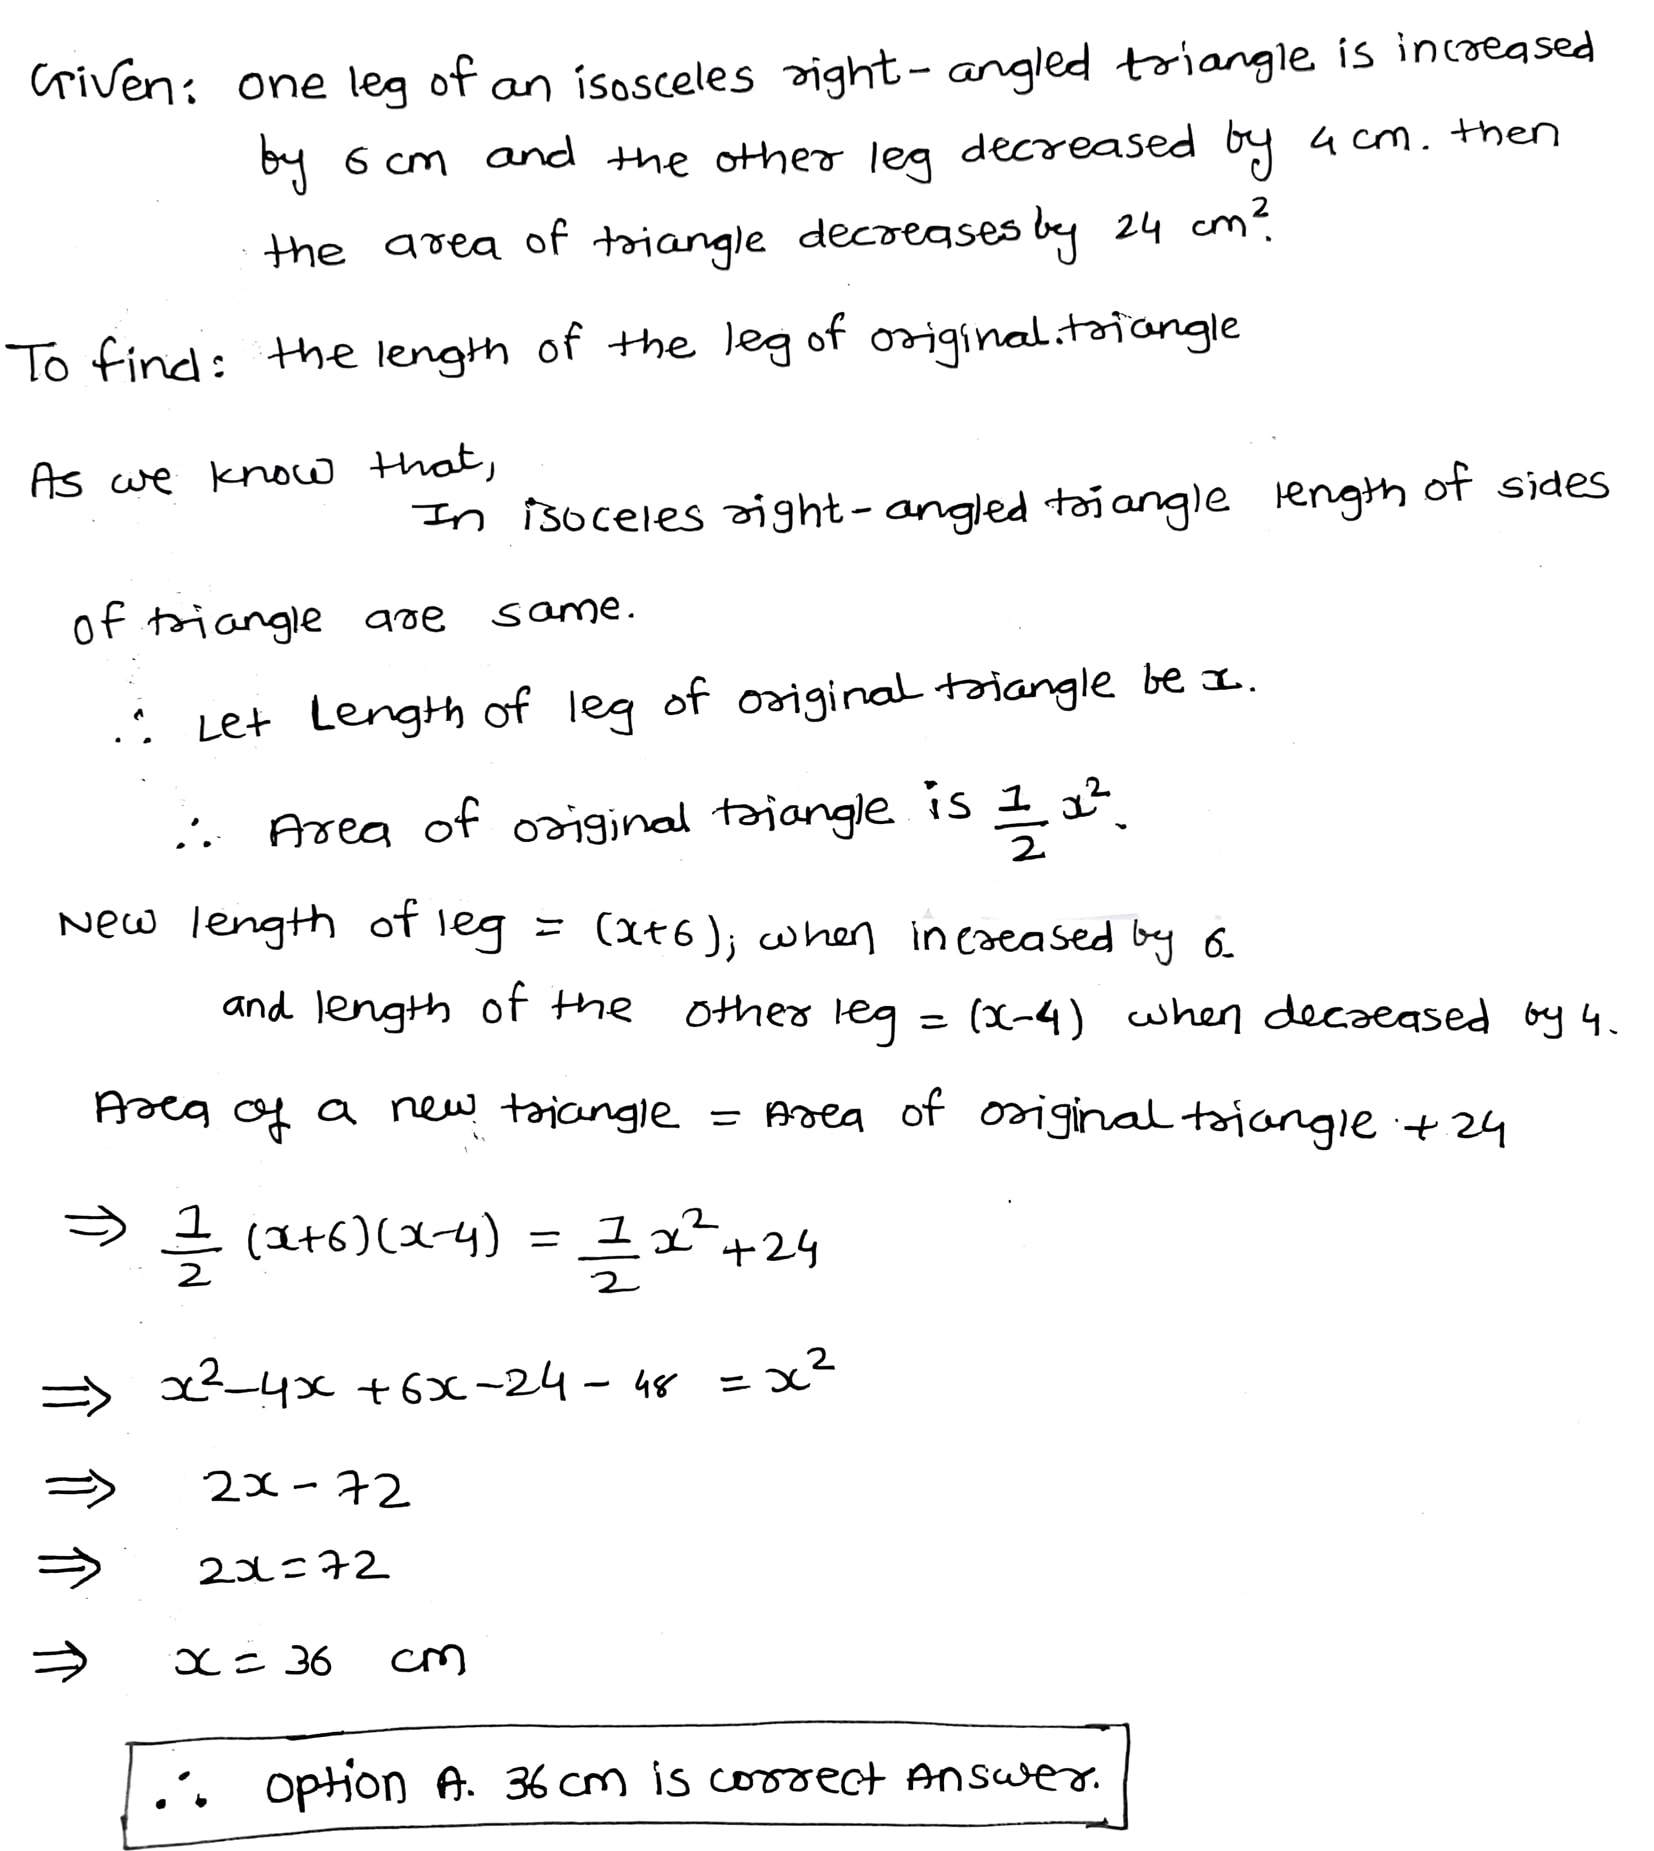 Given: one leg of an isosceles right-angled triangle is increased
by 6 cm and the other leg decreased by 4 cm. then
the area of triangle decreases by 24 cm².
To find: the length of the leg of original.triangle
As we know that,
In isoceles right-angled triangle length of sides
of triangle are same.
∴ Let Length of leg of original triangle be x.
∴ Area of original triangle is 1/2 x².
New length of leg = (x+6); when increased by 6.
and length of the other leg = (x-4) when decreased by 4.
Area of a new triangle = Area of original triangle + 24
⇒ 1/2 (x+6)(x-4) = 1/2 x² + 24
⇒ x²-4x+6x-24-48 = x²
⇒ 2x-72
⇒ 2x=72
⇒ x = 36 cm
∴ option A. 36 cm is correct Answer.